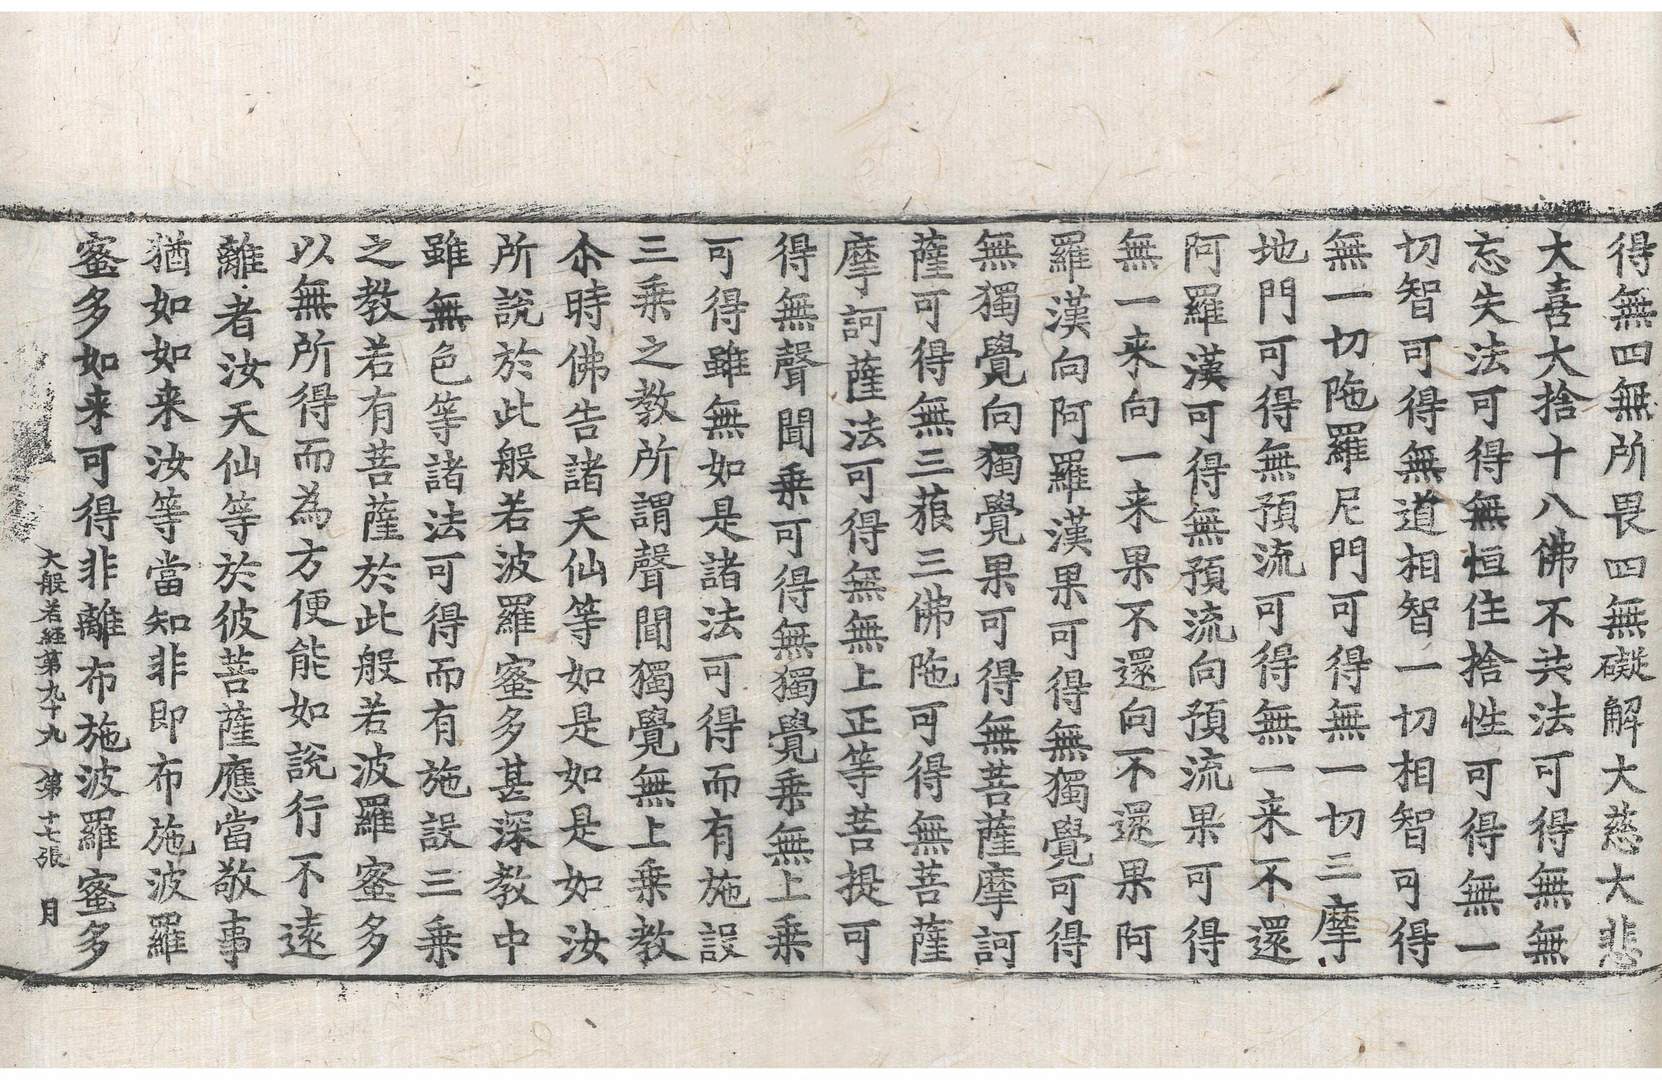 得無四無所畏四無礙解大慈大悲
大喜大捨十八佛不共法可得無無
忘失法可得無恒住捨性可得無一
切智可得無道相智一切相智可得
無一切陁羅尼門可得無一切三摩
地門可得無預流可得無一来不還
阿羅漢可得無預流向預流果可得
無一来向一来果不還向不還果阿
羅漢向阿羅漢果可得無獨覺可得
無獨覺向獨覺果可得無菩薩摩訶
薩可得無三藐三佛陁可得無菩薩
摩訶薩法可得無無上正等菩提可
得無聲聞乗可得無獨覺乗無上乗
可得雖無如是諸法可得而有施設
三乗之教所謂聲聞獨覺無上乗教
尒時佛告諸天仙等如是如是如汝
所說於此般若波羅蜜多甚深教中
雖無色等諸法可得而有施設三乗
之教若有菩薩於此般若波羅蜜多
以無所得而為方便能如說行不遠
離者汝天仙等於彼菩薩應當敬事
猶如如来汝等當知非即布施波羅
蜜多如来可得非離布施波羅蜜多
大般若經第九十九 第十七張 月